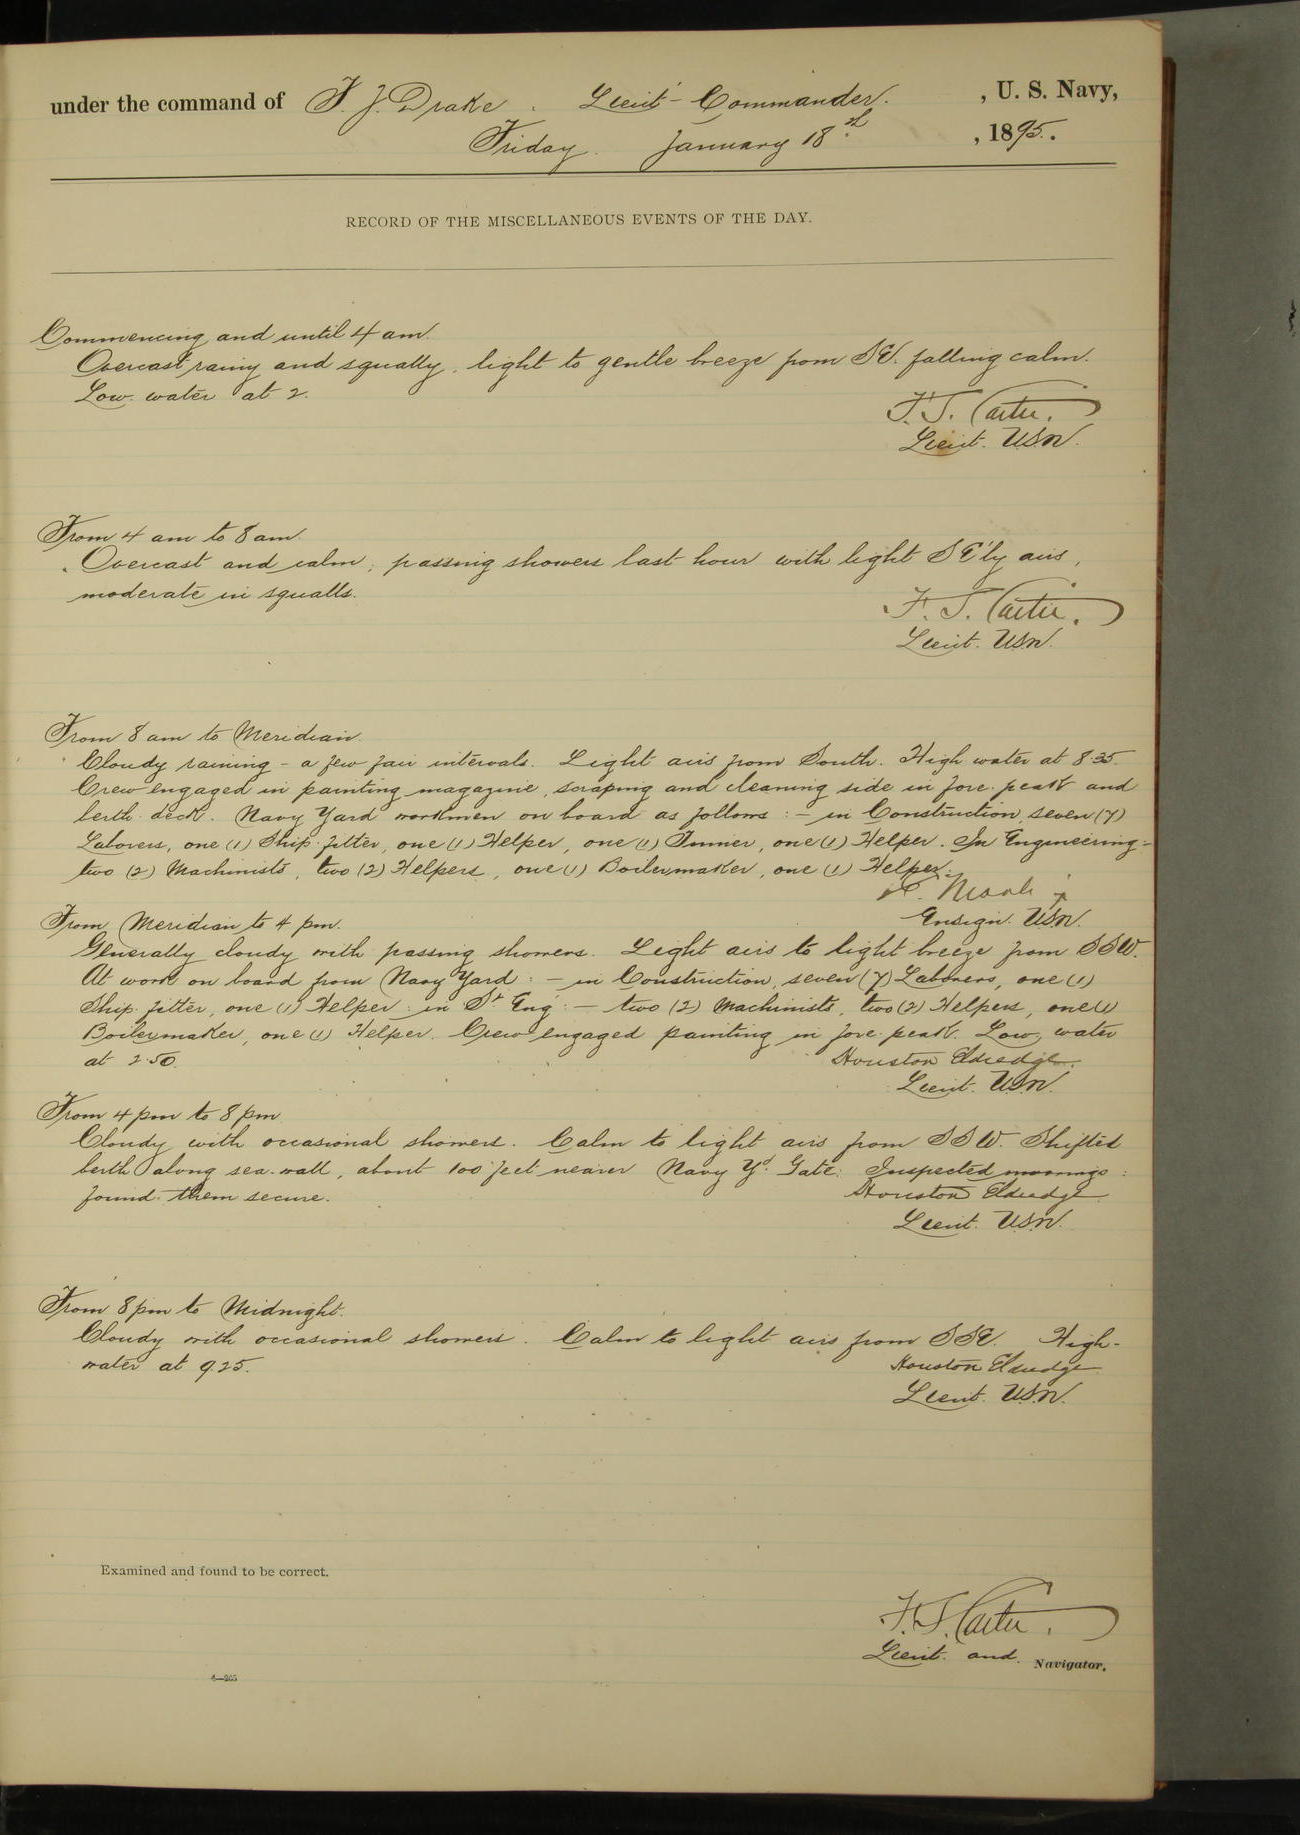 under the command of F. J. Drake. Lieut-Commander. , U. S. Navy,
Friday. January 18th. , 1895.
RECORD OF THE MISCELLANEOUS EVENTS OF THE DAY.
Commencing and until 4 am.
Overcast rainy and squally, light to gentle breeze from SE. falling calm.
Low water at 2.
F. S. Carter.
Lieut. USN.
From 4 am to 8 am.
Overcast and calm; passing showers last hour with light SE'ly airs,
moderate in squalls.
F. S. Carter.
Lieut. USN.
From 8 am to Meridian.
Cloudy raining - a few fair intervals. Light airs from South. High water at 8 35.
Crew engaged in painting magazine, scraping and cleaning side in fore-peak and
berth-deck. Navy Yard workmen on board as follows:- in Construction, seven (7)
Laborers, one (1) Ship-fitter, one (1) Helper, one (1) Tinner, one (1) Helper. In Engineering:-
two (2) Machinists, two (2) Helpers, one (1) Boilermaker, one (1) Helper.
Ensign. USN.
From Meridian to 4 pm.
Generally cloudy with passing showers. Light airs to light breeze from SSW.
At work on board from Navy Yard:- in Construction, seven (7) Laborers, one (1)
Ship-fitter, one (1) Helper: in St Eng:- two (2) Machinists, two (2) Helpers, one (1)
Boilermaker, one (1) Helper. Crew engaged painting in fore-peak. Low water
at 2 50.
Houston Eldredge.
Lieut. USN.
From 4 pm to 8 pm
Cloudy with occasional showers. Calm to light airs from SSW. Shifted
berth along sea-wall, about 100 feet nearer Navy Yd. Gate. Inspected moorings:
found them secure.
Houston Eldredge
Lieut. USN.
From 8 pm to Midnight.
Cloudy with occasional showers. Calm to light airs from SSE. High-
water at 9 25.
Houston Eldredge
Lieut. USN.
Examined and found to be correct.
F. S. Carter.
Lieut. and Navigator.